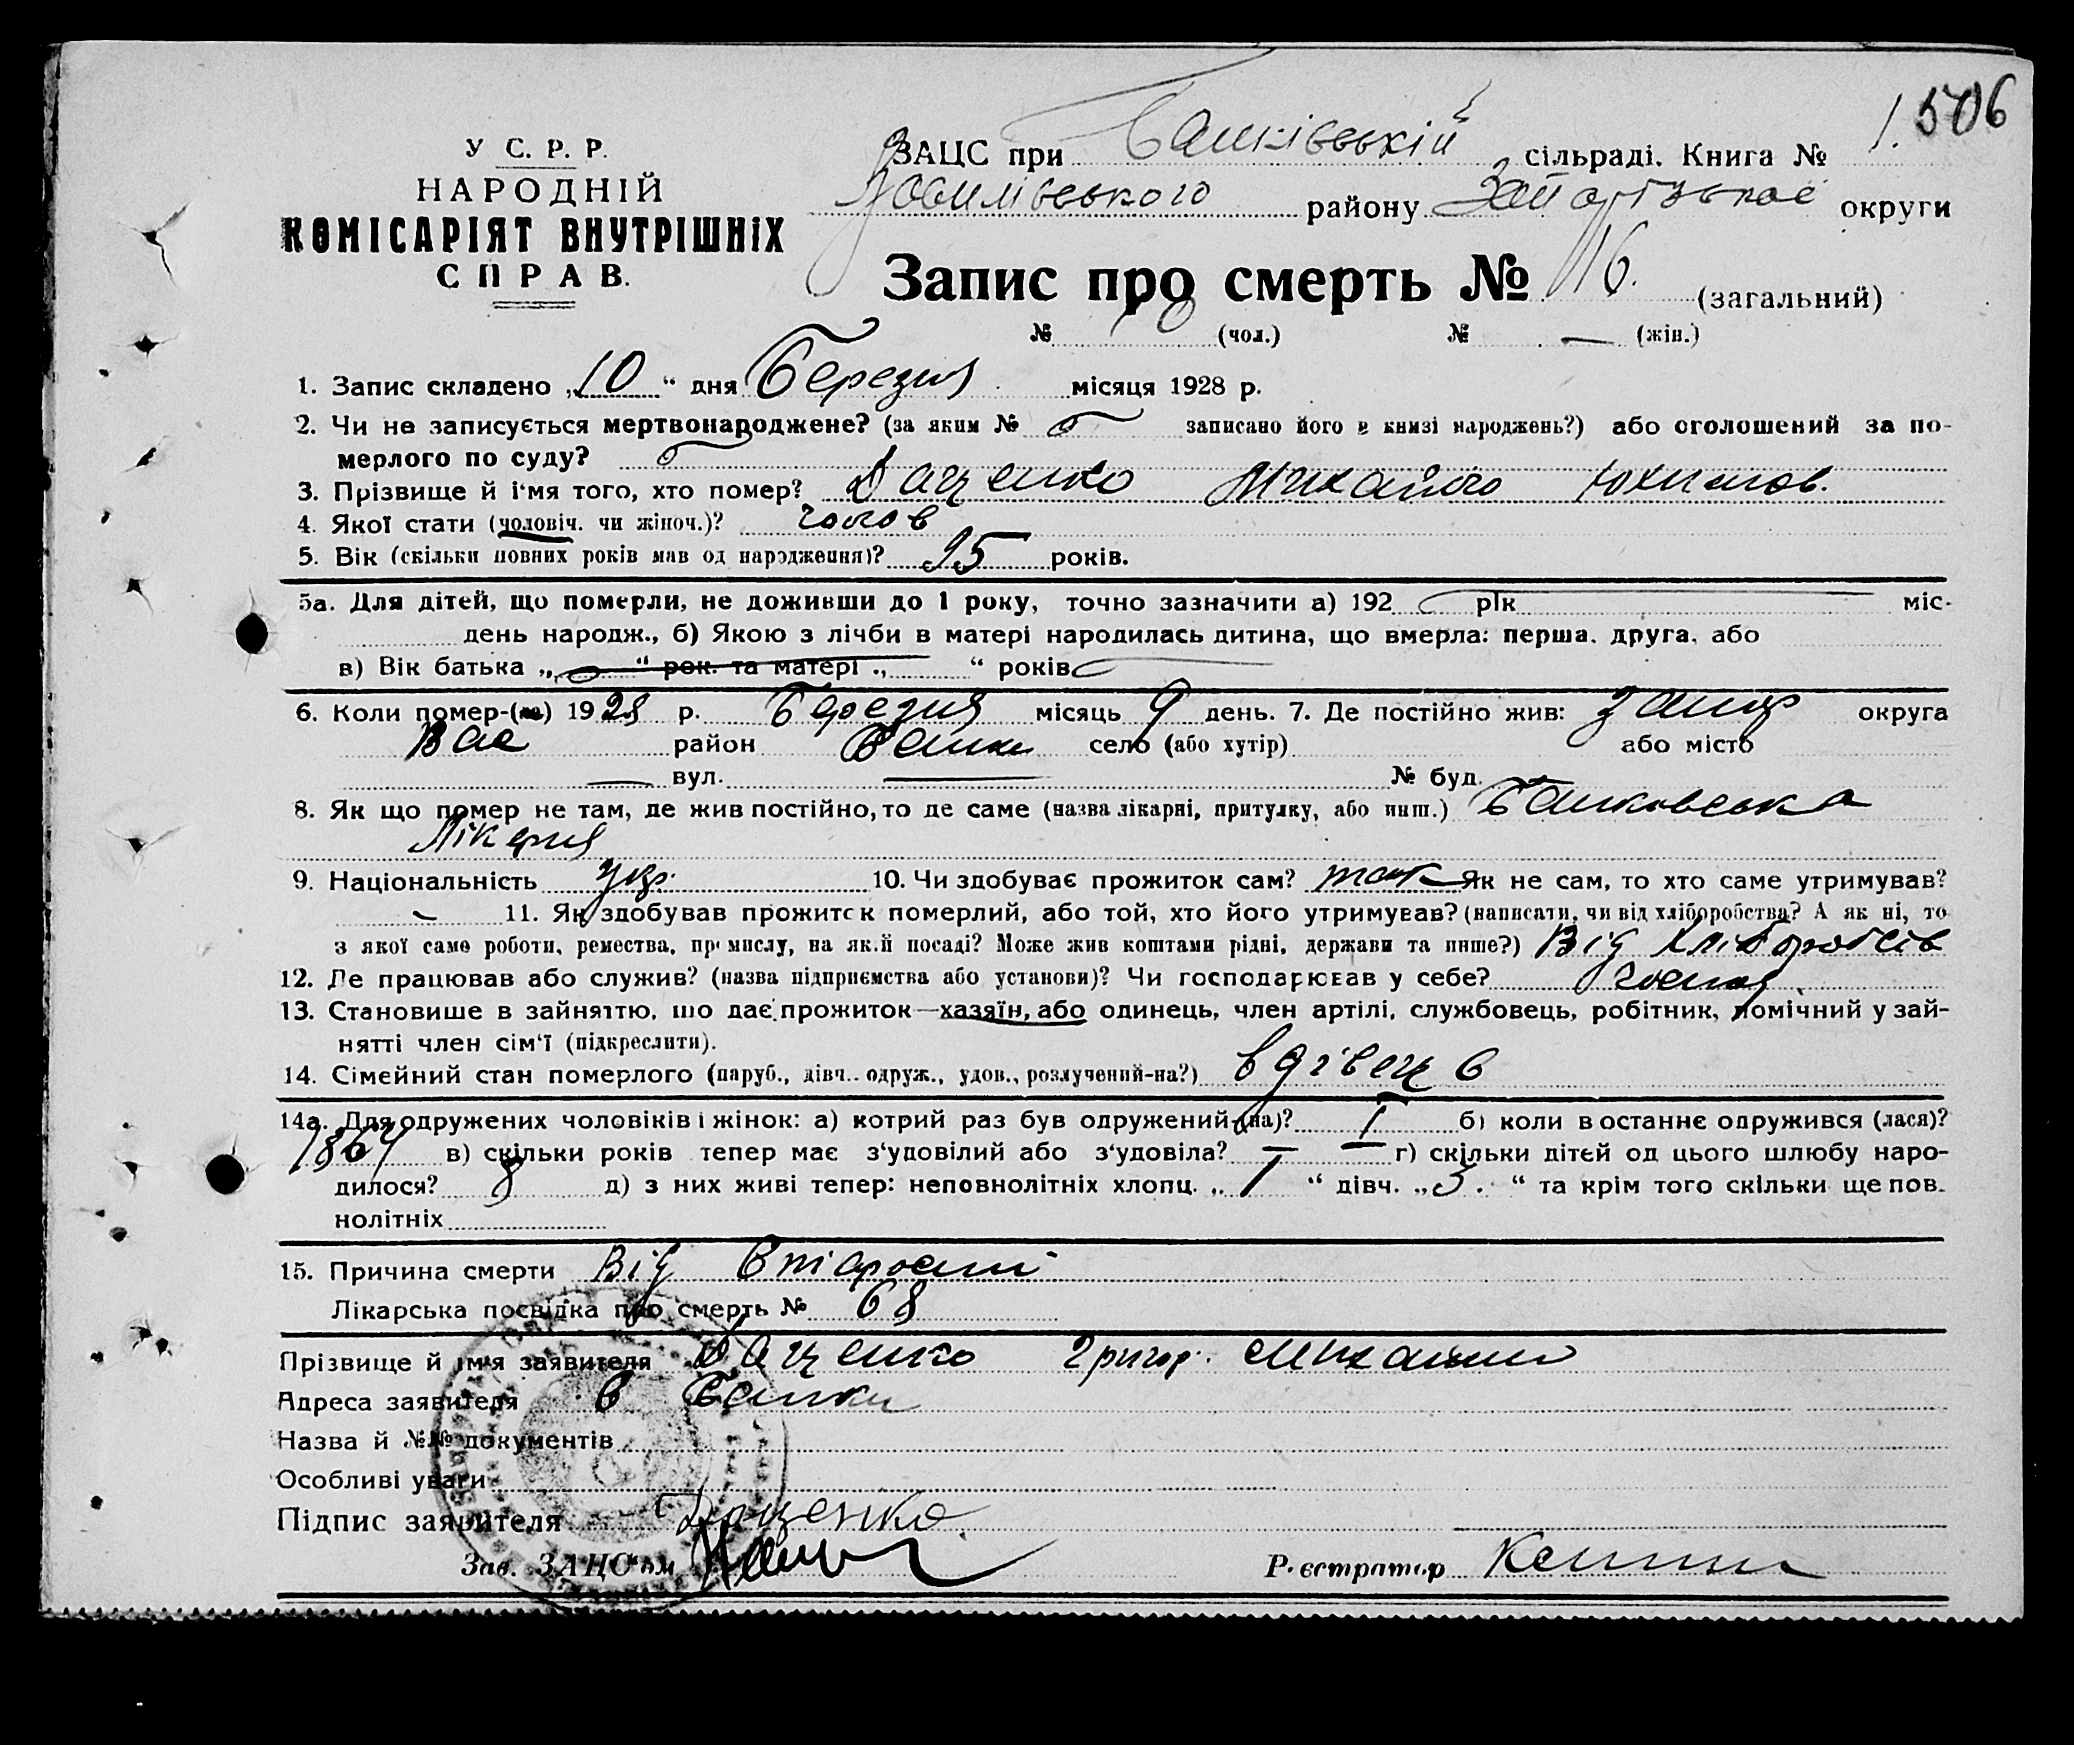 1. 506
У С. Р. Р.
НАРОДНІЙ
КОМІСАРІЯТ ВНУТРІШНІХ
СПРАВ.
ЗАЦС при сільраді. Книга №
району округи
Запис про смерть № 16. (загальний)
№ (чол.) № — (жін.)
1. Запис складено „10“ дня Березня місяця 1928 р.
2. Чи не записується мертвонароджене? (за яким № записано його в книзі народжень?) або оголошений за по-
мерлого по суду?
3. Прізвище й і'мя того, хто помер? Даценко Михайло Юхимов.
4. Якої стати (чоловіч. чи жіноч.)? чолов
5. Вік (скільки повних років мав од народження)? 95 років.
5а. Для дітей, що померли, не доживши до 1 року, точно зазначити а) 192 рік міс.
день народж., б) Якою з лічби в матері народилась дитина, що вмерла: перша. друга, або
в) Вік батька „ “ рок. та матері „ “ років
6. Коли помер-(ла) 1928 р. Березня місяць 9 день. 7. Де постійно жив: Запор округа
Вас район Балки село (або хутір) або місто
— вул. — № буд.
8. Як що помер не там, де жив постійно, то де саме (назва лікарні, притулку, або инш.) Балковська
Лікарня
9. Національність Укр. 10. Чи здобуває прожиток сам? так Як не сам, то хто саме утримував?
— 11. Як здобував прожиток померлий, або той, хто його утримував? (написати, чи від хліборобства? А як ні, то
з якої саме роботи, ремества, промислу, на якій посаді? Може жив коштами рідні, держави та инше?) Від Хліборобсів
12. Де працював або служив? (назва підприємства або установи)? Чи господарював у себе? господ.
13. Становише в зайняттю, що дає прожиток—хазяїн, або одинець, член артілі, службовець, робітник, помічний у зай-
нятті член сім'ї (підкреслити).
14. Сімейний стан померлого (паруб., дівч.. одруж., удов., розлучений-на?) вдівець
14а. Для одружених чоловіків і жінок: а) котрий раз був одружений (на)? I б) коли в останнє одружився (лася)?
1864 в) скільки років тепер має з'удовілий або з'удовіла? — — г) скільки дітей од цього шлюбу наро-
дилося? 8 д) з них живі тепер: неповнолітніх хлопц. „1“ дівч. „3.“ та крім того скільки ще пов.
нолітніх
15. Причина смерти Від Старости
Лікарська посвідка про смерть № 68
Прізвище й імя заявителя Даценко Григор. Михайл
Адреса заявителя в Балки
Назва й №№ документів
Особливі уваги
Підпис заявителя Даценко
Зав. ЗАЦС'ом
Реєстратор